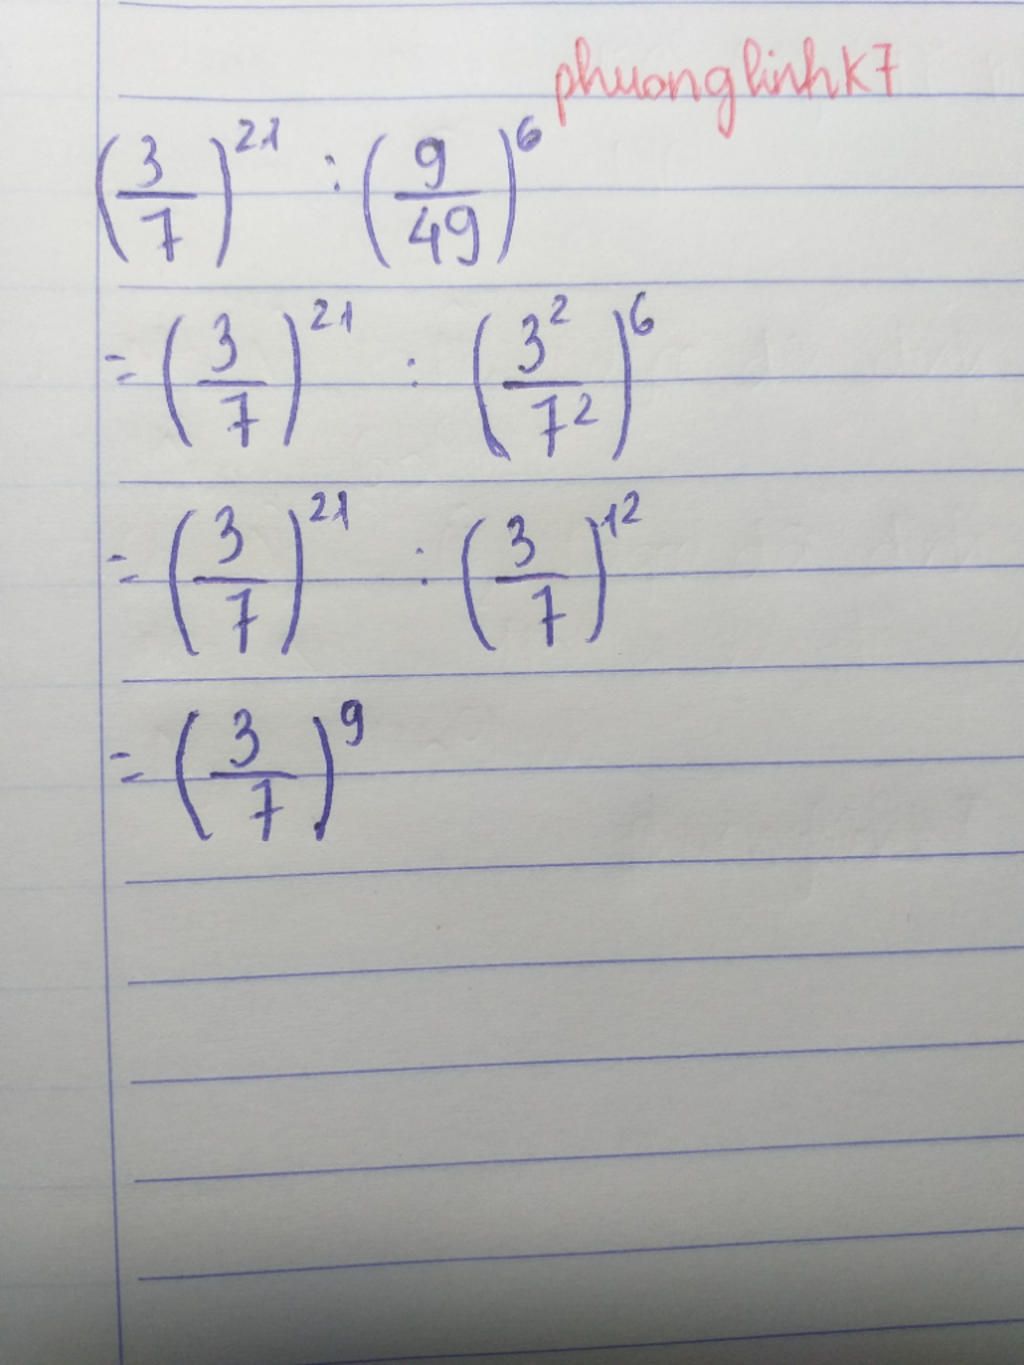 phuonglinhk7
(3/7)^21 : (9/49)^6
= (3/7)^21 : (3^2/7^2)^6
= (3/7)^21 : (3/7)^12
= (3/7)^9